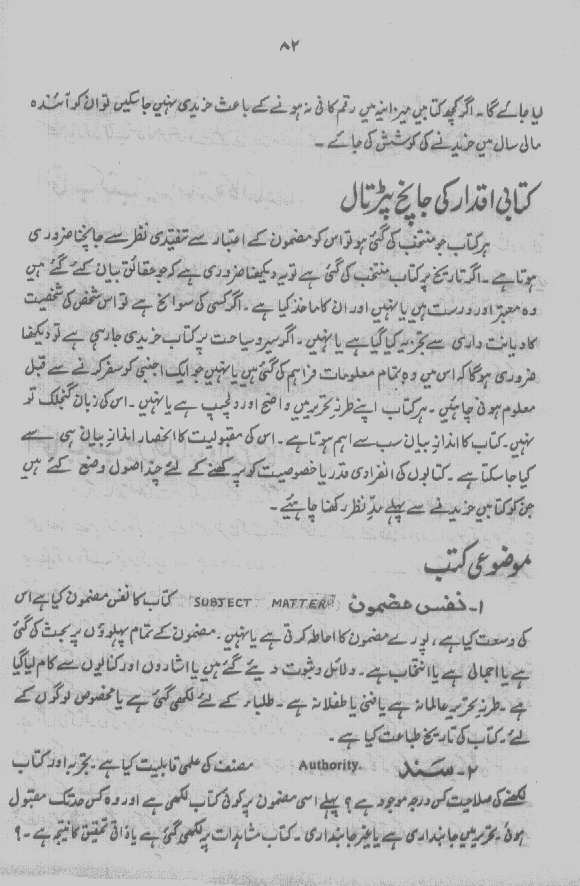 ۸۲
لیا جائے گا۔ اگر کچھ کتابیں میزانیہ میں رقم کافی نہ ہونے کے باعث خریدی نہیں جاسکیں تو ان کو آئندہ
مالی سال میں خریدنے کی کوشش کی جائے۔
کتابی اقدار کی جانچ پڑتال
ہر کتاب جو منتخب کی گئی ہو تو اس کو مضمون کے اعتبار سے تنقیدی نظر سے جانچنا ضروری
ہوتا ہے۔ اگر تاریخ پر کتاب منتخب کی گئی ہے تو یہ دیکھنا ضروری ہے کہ جو حقائق بیان کئے گئے ہیں
وہ معتبر اور درست ہیں یا نہیں اور ان کا ماخذ کیا ہے۔ اگر کسی کی سوانح ہے تو اس شخص کی شخصیت
کا دیانت داری سے تجزیہ کیا گیا ہے یا نہیں۔ اگر سیر و سیاحت پر کتاب خریدی جارہی ہے تو دیکھنا
ضروری ہوگا کہ اس میں وہ تمام معلومات فراہم کی گئی ہیں یا نہیں جو ایک اجنبی کو سفر کرنے سے قبل
معلوم ہونی چاہئیں۔ ہر کتاب اپنے طرز تحریر میں واضح اور دلچسپ ہے یا نہیں۔ اس کی زبان گنجلک تو
نہیں۔ کتاب کا انداز بیان سب سے اہم ہوتا ہے۔ اس کی مقبولیت کا انحصار انداز بیان ہی سے
کیا جا سکتا ہے۔ کتابوں کی انفرادی قدر یا خصوصیت کو پرکھنے کے لئے چند اصول وضع کئے ہیں
جن کو کتابیں خریدنے سے پہلے مدِّ نظر رکھنا چاہئیے۔
موضوعی کتب
۱۔ نفسِ مضمون (SUBJECT MATTER) کتاب کا نفس مضمون کیا ہے اس
کی وسعت کیا ہے، پورے مضمون کا احاطہ کرتی ہے یا نہیں۔ مضمون کے تمام پہلوؤں پر بحث کی گئی
ہے یا اجمالی ہے یا انتخاب ہے۔ دلائل و ثبوت دیئے گئے ہیں یا اشاروں اور کنایوں سے کام لیا گیا
ہے۔ طرز تحریر عالمانہ ہے یا فنی یا طفلانہ ہے۔ طلباء کے لئے لکھی گئی ہے یا مخصوص لوگوں کے
لئے۔ کتاب کی تاریخ طباعت کیا ہے۔
۲۔ سَند Authority. مصنف کی علمی قابلیت کیا ہے۔ تجربہ اور کتاب
لکھنے کی صلاحیت کس درجہ موجود ہے؟ پہلے اسی مضمون پر کوئی کتاب لکھی ہے اور وہ کس حد تک مقبول
ہوئی۔ تحریر میں جانبداری ہے یا غیر جانبداری۔ کتاب مشاہدات پر لکھی گئی ہے یا ذاتی تحقیق کا نتیجہ ہے۔؟